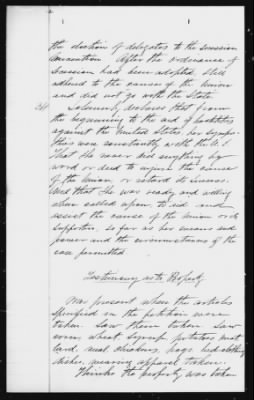 the election of delegates to the secession
Convention. After the ordinance of
Secession had been adopted still
adhered to the cause of the Union
and did not go with the State
Solemnly declares that from
the beginning to the end of hostilities
against the United States, her sympa-
thies were constantly with the U.S.
That she never did anything by
word or deed to injure the cause
of the Union or retard its success.
And that she was ready and willing
when called upon, to aid and
assist the cause of the Union or its
supporters, so far as her means and
power and the circumstances of the
case permitted.
Testimony as to Property
Was present when the articles
specified in the petition were
taken. Saw them taken. Saw
corn, wheat, syrup, potatoes, meat
lard, meal, chickens, hogs, bed-clothing
dishes, wearing apparel taken.
Thinks the property was taken